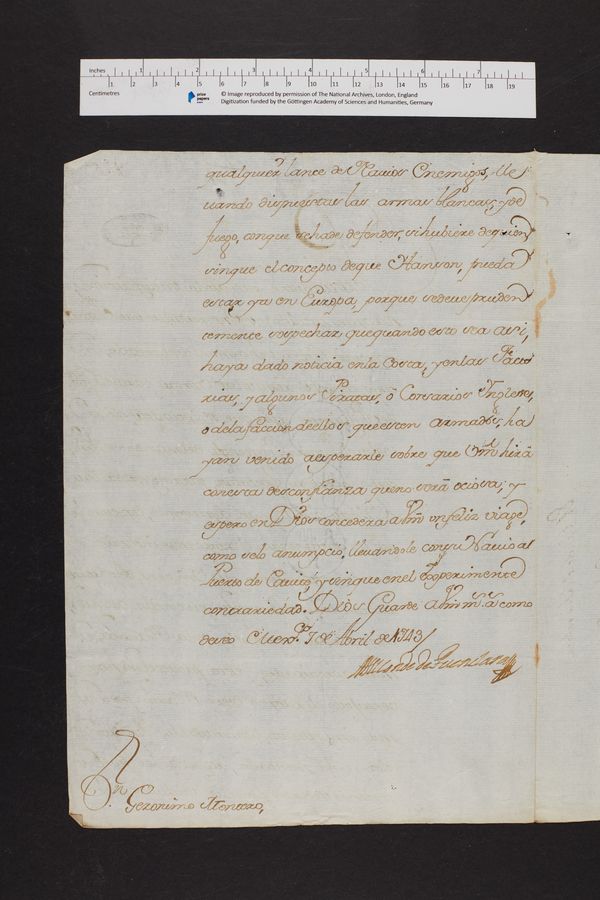 Inches 1 2 3 4 5 6 7
1 2 3 4 5 6 7 8 9 10 11 12 13 14 15 16 17 18 19
Centimetres
prize papers
© Image reproduced by permission of The National Archives, London, England
Digitization funded by the Göttingen Academy of Sciences and Humanities, Germany
qualquier lance de Navios Enemigos, lle
uando dispuestas las armas blancas, y de
fuego, conque se ha de defender, si hubiere de quien,
sin que el concepto de que Hanson, pueda
estar ya en Europa, porque se deue pruden
temente sospechar que quando esto sea asi,
haya dado noticia en la Costa, y en las Facto
rias, y algunos Piratas, ô Corsarios Ingleses,
o de la faccion de ellos que esten armados, ha
yan venido a esperarle sobre que Vm. hirâ
con esta desconfianza que no serâ ociosa; y
espero en Dios concederâ a Vm. un feliz viage,
como se lo anumpcio, lleuandole con su Nauio al
Puerto de Cauite, y sin que en el experimente
contrariedad. Dios Guarde a Vm. m.s a.s como
deseo 7 de Abril de 1743
El Conde de Fuenclara
D.n Geronimo Montero,